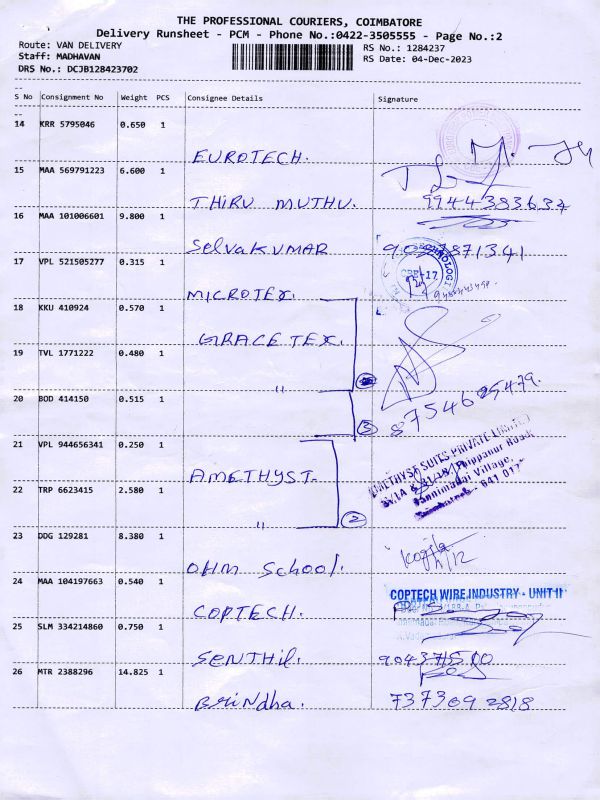 THE PROFESSIONAL COURIERS, COIMBATORE
Delivery Runsheet - PCM - Phone No.:0422-3505555 - Page No.:2
Route: VAN DELIVERY RS No.: 1284237
Staff: MADHAVAN RS Date: 04-Dec-2023
DRS No.: DCJB128423702
S No Consignment No Weight PCS Consignee Details Signature
14 KRR 5795046 0.650 1
EUROTECH.
15 MAA 569791223 6.600 1
THIRU MUTHU. 9944383637
16 MAA 101006601 9.800 1
SELVAKUMAR
17 VPL 521505277 0.315 1
MICROTEX.
18 KKU 410924 0.570 1
GRACE TEX.
19 TVL 1771222 0.480 1
"
20 BOD 414150 0.515 1
3
8754625479.
21 VPL 944656341 0.250 1
AMETHYST SUITS PRIVATE LIMITED
AMETHYST
22 TRP 6623415 2.580 1
" 2
23 DDG 129281 8.380 1
OHM School.
24 MAA 104197663 0.540 1
COPTECH WIRE INDUSTRY - UNIT II
COPTECH.
25 SLM 334214860 0.750 1
SENTHIL.
26 MTR 2388296 14.825 1
Brindha. 7373092818